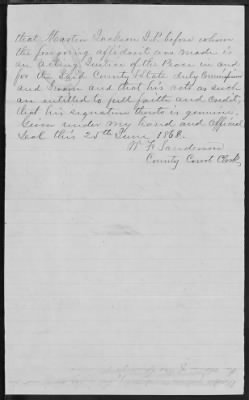 that Martin Jackson J.P. before whom
the foregoing affidavit was made is
an Acting Justice of the Peace in and
for the Said County & State duly Commission
and Sworn and that his acts as such
are entitled to full faith and Credit,
that his signature thereto is genuine.
Given under my hand and Official
Seal this 25th June 1868.
W F Sanderson
County Court Clerk,